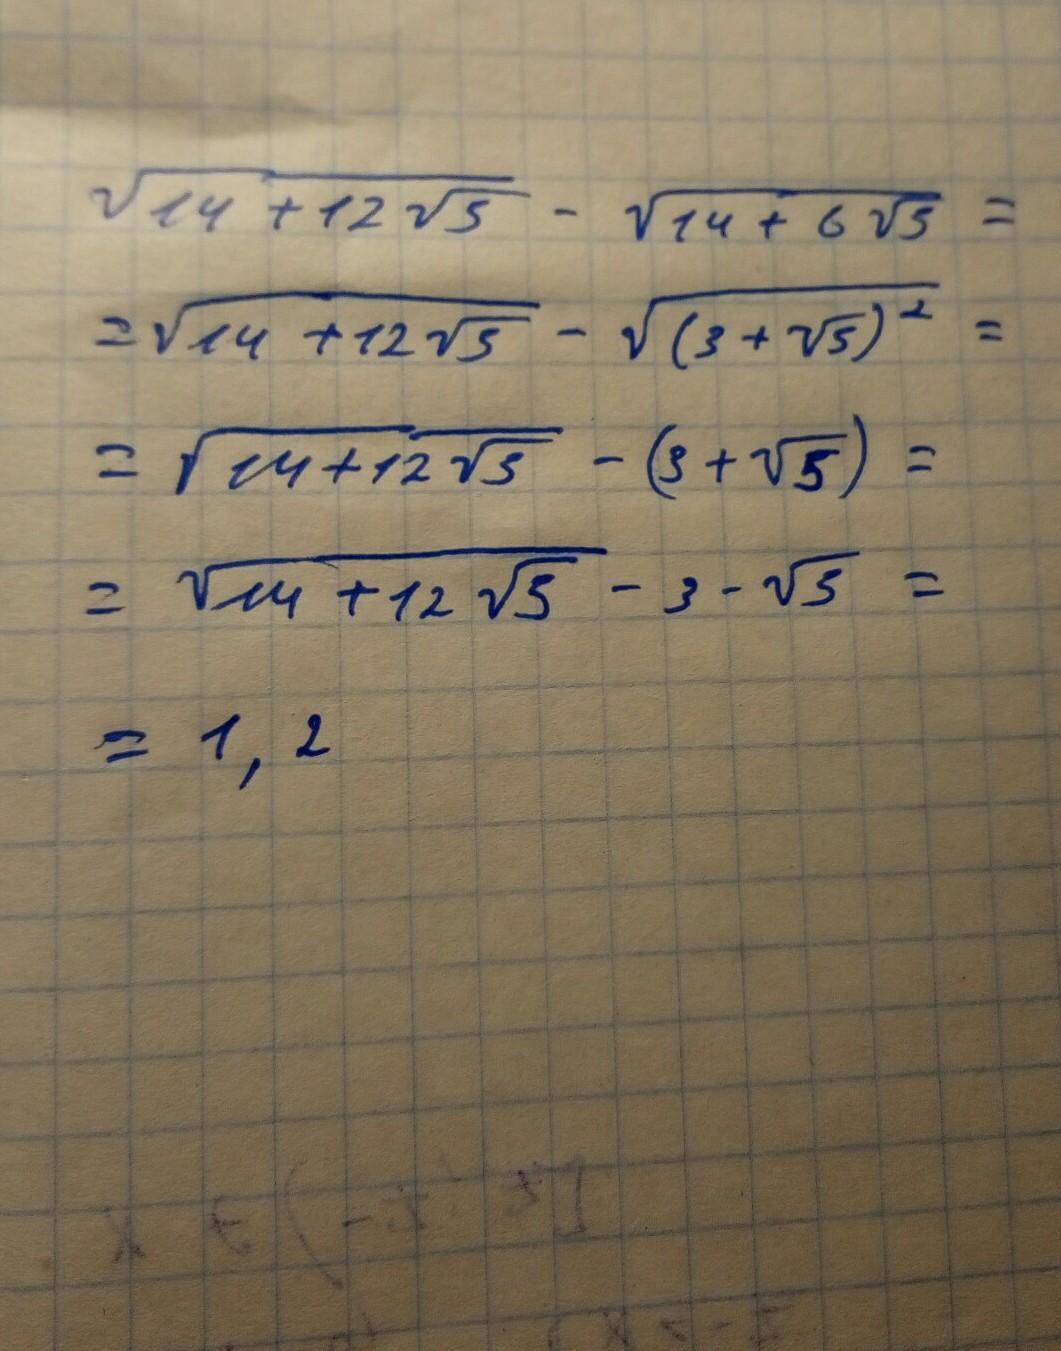 √(14 + 12√5) - √(14 + 6√5) =
= √(14 + 12√5) - √((3 + √5)²) =
= √(14 + 12√5) - (3 + √5) =
= √(14 + 12√5) - 3 - √5 =
= 1,2